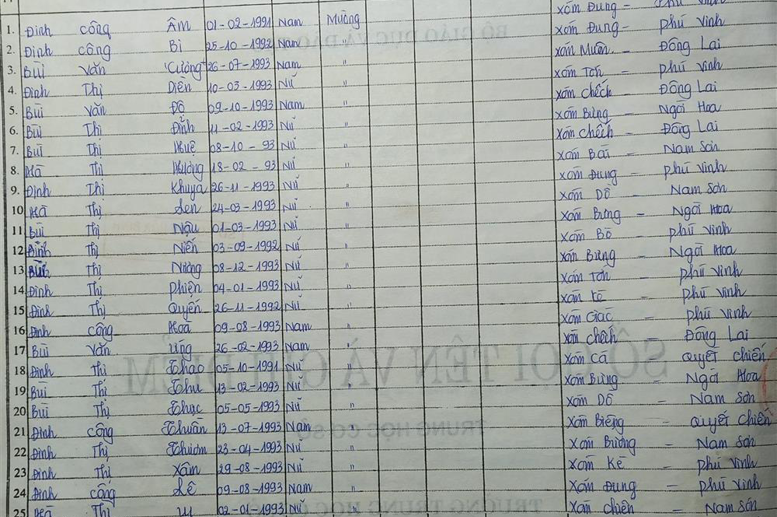 xóm Đung - Phú Vinh
1. Đinh công Âm 01-02-1991 Nam Mường xóm Đung - phú Vinh
2. Đinh công Bi 25-10-1992 Nam " xóm Muôn - Đông Lai
3. Bùi Văn Cường 26-07-1993 Nam " xóm Tớn - phú Vinh
4. Đinh Thị Diên 10-03-1993 Nữ " xóm chếch Đông Lai
5. Bùi Văn Đô 09-10-1993 Nam " xóm Bưng - Ngòi Hoa
6. Bùi Thị Đỉnh 11-02-1993 Nữ " xóm chếch - Đông Lai
7. Bùi Thị Huệ 08-10-93 Nữ " xóm Bái - Nam Sơn
8. Hà Thị Hường 18-02-93 Nữ " xóm Đung - phú Vinh
9. Đinh Thị Khuya 26-11-1993 Nữ " xóm Dồ - Nam Sơn
10 Hà Thị Len 24-03-1993 Nữ " xóm Bưng - Ngòi Hoa
11 Bùi Thị Nậu 01-03-1993 Nữ " xóm Bò - phú Vinh
12 Đinh Thị Niên 03-09-1992 Nữ " xóm Bưng - Ngòi Hoa
13 Bùi Thị Nương 08-12-1993 Nữ " xóm Tớn - phú Vinh
14 Đinh Thị Phiện 04-01-1993 Nữ " xóm Kè - phú Vinh
15 Đinh Thị Quyến 26-11-1992 Nữ " xóm Giác - phú Vinh
16 Đinh công Hoà 09-08-1993 Nam " xóm chếch Đông Lai
17 Bùi Văn ứng 26-02-1993 Nam " xóm Cá - Quyết chiến
18 Đinh Thị Thao 05-10-1991 Nữ " xóm Bưng - Ngòi Hoa
19 Bùi Thị Thu 13-02-1993 Nữ " xóm Dồ - Nam Sơn
20 Bùi Thị Thục 05-05-1993 Nữ " xóm Biệng - Quyết chiến
21 Đinh công Thuần 13-07-1993 Nam " xóm Bương - Nam Sơn
22 Đinh Thị 23-04-1993 Nữ " xóm Kè - phú Vinh
23 Đinh Thị Xâm 29-08-1993 Nữ " xóm Đung - phú Vinh
24 Đinh công Lê 09-08-1993 Nam " xóm chiên - Nam Sơn
25 Hà Thị 02-01-1993 Nữ "